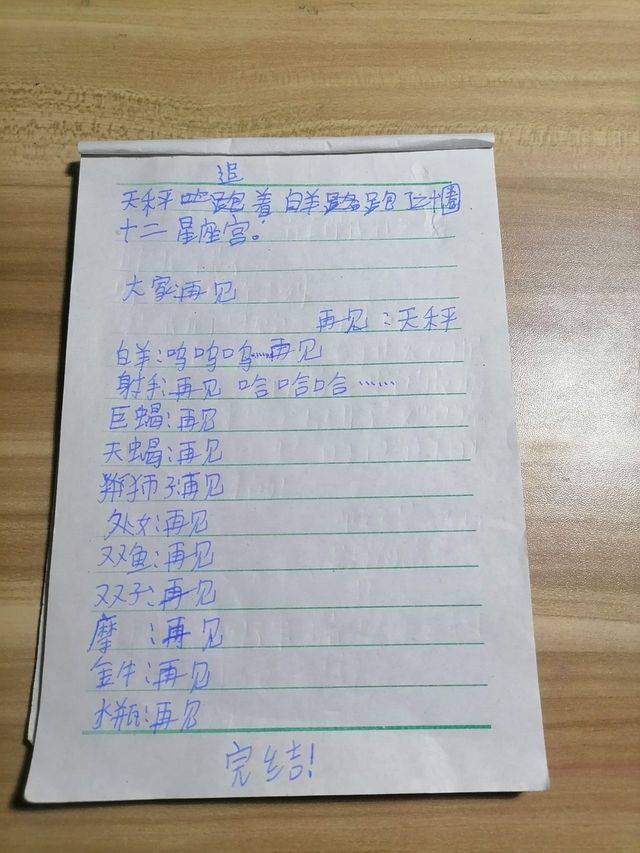 追
天秤 着白羊 跑了
十二星座宫。
大家再见
再见:天秤
白羊:呜呜呜……再见
射手:再见 哈哈哈……
巨蝎:再见
天蝎:再见
狮子:再见
处女:再见
双鱼:再见
双子:再见
摩 :再见
金牛:再见
水瓶:再见
完结!